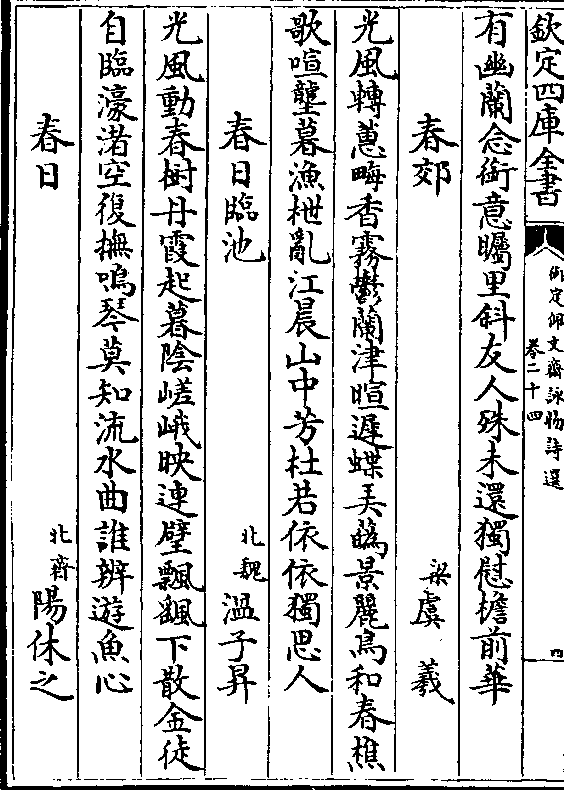 欽定四庫全書
御定佩文齋詠物詩選
卷二十四
四
有幽蘭念銜意矚里斜友人殊未還獨慰檐前華
春郊
梁虞羲
光風轉蕙畮香霧鬱蘭津暄遲蝶弄蘤景麗鳥和春樵
歌喧壟暮漁枻亂江晨山中芳杜若依依獨思人
春日臨池
北魏溫子昇
光風動春樹丹霞起暮陰嵯峨映連壁飄颻下散金徒
自臨濠渚空復撫鳴琴莫知流水曲誰辨遊魚心
春日
北齊陽休之